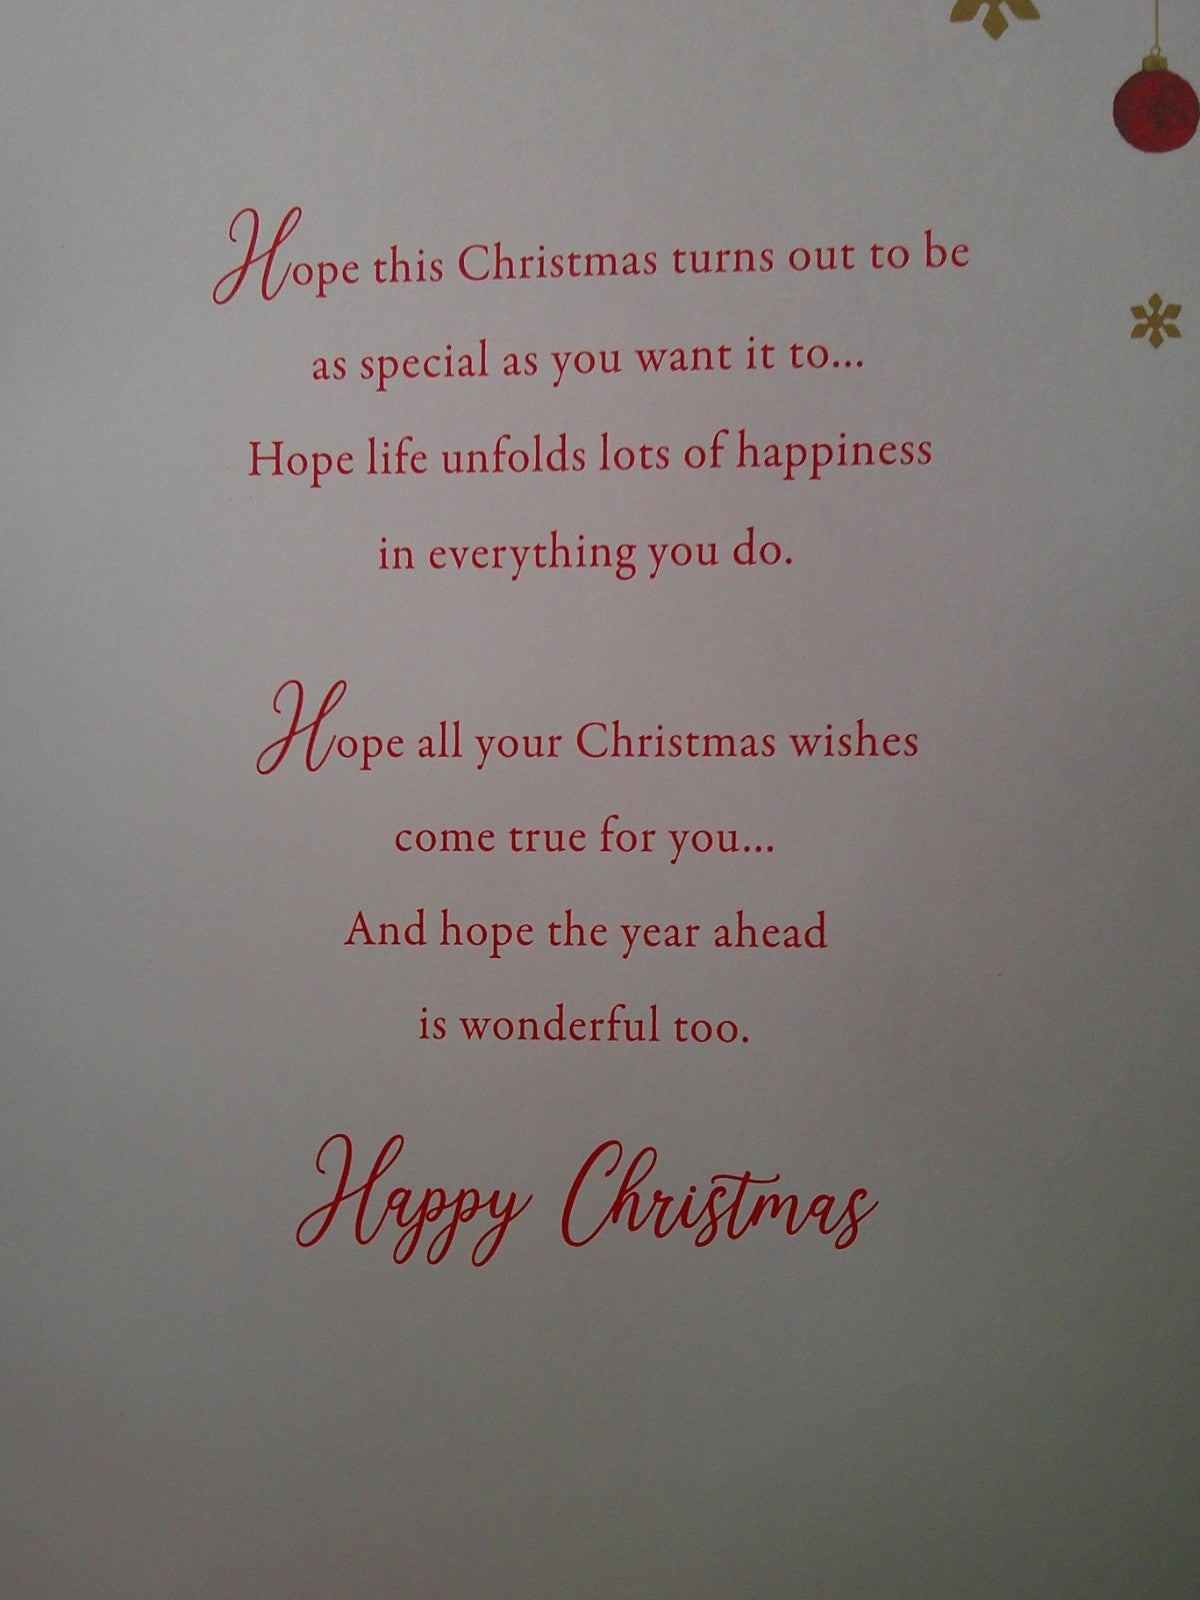 Hope this Christmas turns out to be
as special as you want it to...
Hope life unfolds lots of happiness
in everything you do.
Hope all your Christmas wishes
come true for you...
And hope the year ahead
is wonderful too.
Happy Christmas